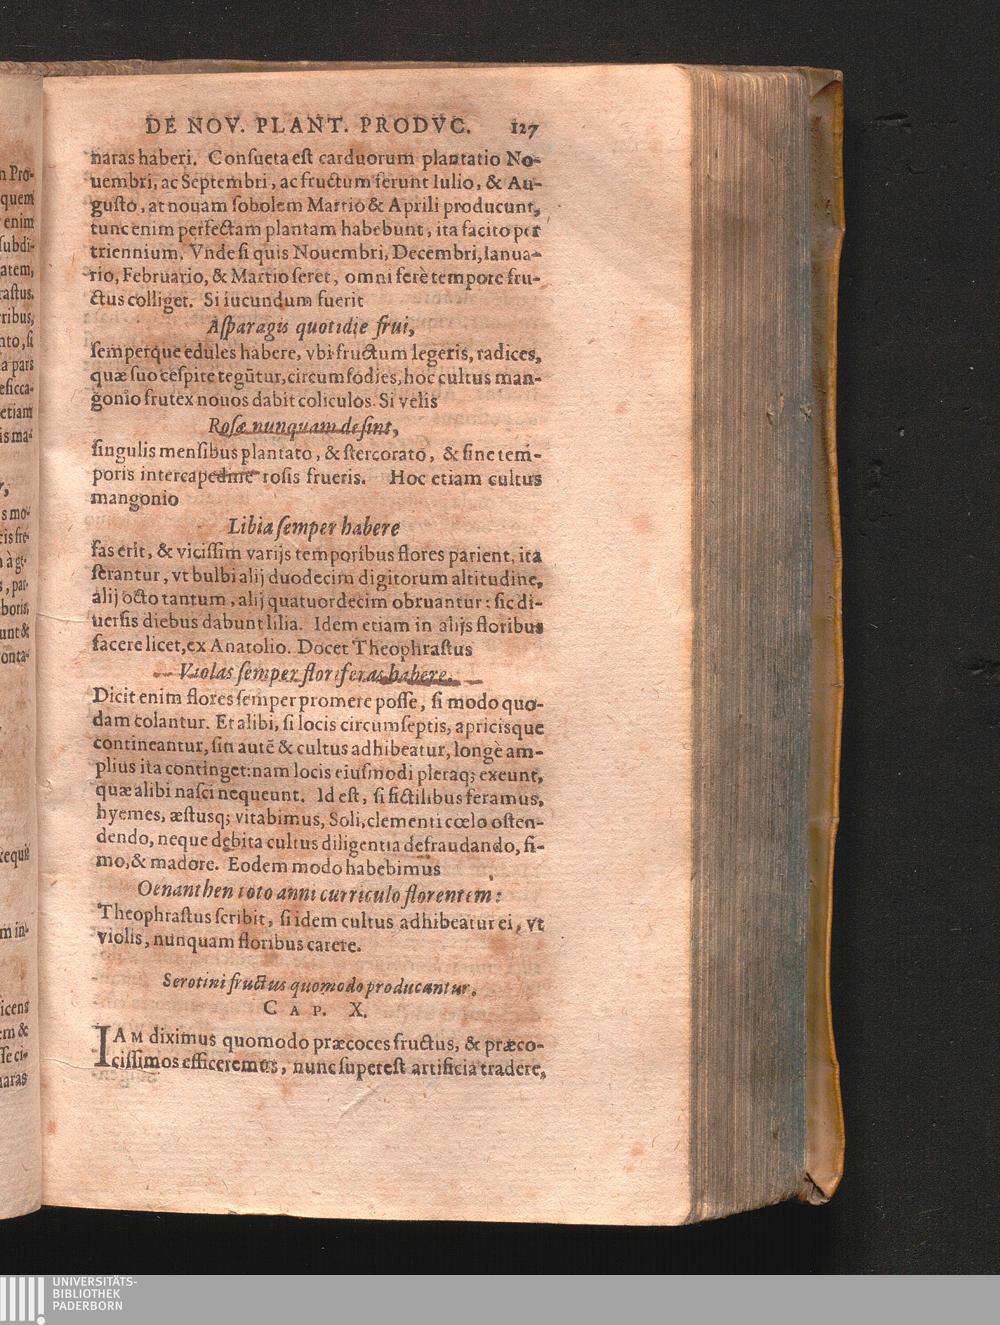 DE NOV. PLANT. PRODVC. 127
naras haberi. Conſueta eſt carduorum plantatio No-
uembri, ac Septembri, ac fructum ferunt Iulio, & Au-
guſto, at nouam ſobolem Martio & Aprili producunt,
tunc enim perfectam plantam habebunt, ita facito per
triennium. Vnde ſi quis Nouembri, Decembri, Ianua-
rio, Februario, & Martio ſeret, omni ferè tempore fru-
ctus colliget. Si iucundum fuerit
Aſparagis quotidie frui,
ſemperque edules habere, vbi fructum legeris, radices,
quæ ſuo ceſpite tegūtur, circumfodies, hoc cultus man-
gonio frutex nouos dabit coliculos. Si velis
Roſæ nunquam deſint,
ſingulis menſibus plantato, & ſtercorato, & ſine tem-
poris intercapedine roſis frueris. Hoc etiam cultus
mangonio
Libia ſemper habere
fas erit, & viciſſim varijs temporibus flores parient, ita
ſerantur, vt bulbi alij duodecim digitorum altitudine,
alij octo tantum, alij quatuordecim obruantur: ſic di-
uerſis diebus dabunt lilia. Idem etiam in alijs floribus
facere licet, ex Anatolio. Docet Theophraſtus
Violas ſemper floriferas habere.
Dicit enim flores ſemper promere poſſe, ſi modo quo-
dam colantur. Et alibi, ſi locis circumſeptis, apricisque
contineantur, ſin autē & cultus adhibeatur, longè am-
plius ita continget: nam locis eiuſmodi pleraq; exeunt,
quæ alibi naſci nequeunt. Id eſt, ſi fictilibus feramus,
hyemes, æſtusq; vitabimus, Soli, clementi cœlo oſten-
dendo, neque debita cultus diligentia defraudando, fi-
mo, & madore. Eodem modo habebimus
Oenanthen toto anni curriculo florentem:
Theophraſtus ſcribit, ſi idem cultus adhibeatur ei, vt
violis, nunquam floribus carere.
Serotini fructus quomodo producantur.
CAP. X.
IAM diximus quomodo præcoces fructus, & præco-
ciſſimos efficeremus, nunc ſupereſt artificia tradere,
n Pro-
quem
enim
ſubdi-
atem,
raſtus.
ribus,
nto, ſi
a pars
eſicca-
etiam
is ma-
s mo-
cis fre-
à ge-
, par-
boris,
unt &
onta-
requi
m in-
icens
em &
ſſe ci-
naras
UNIVERSITÄTS-
BIBLIOTHEK
PADERBORN